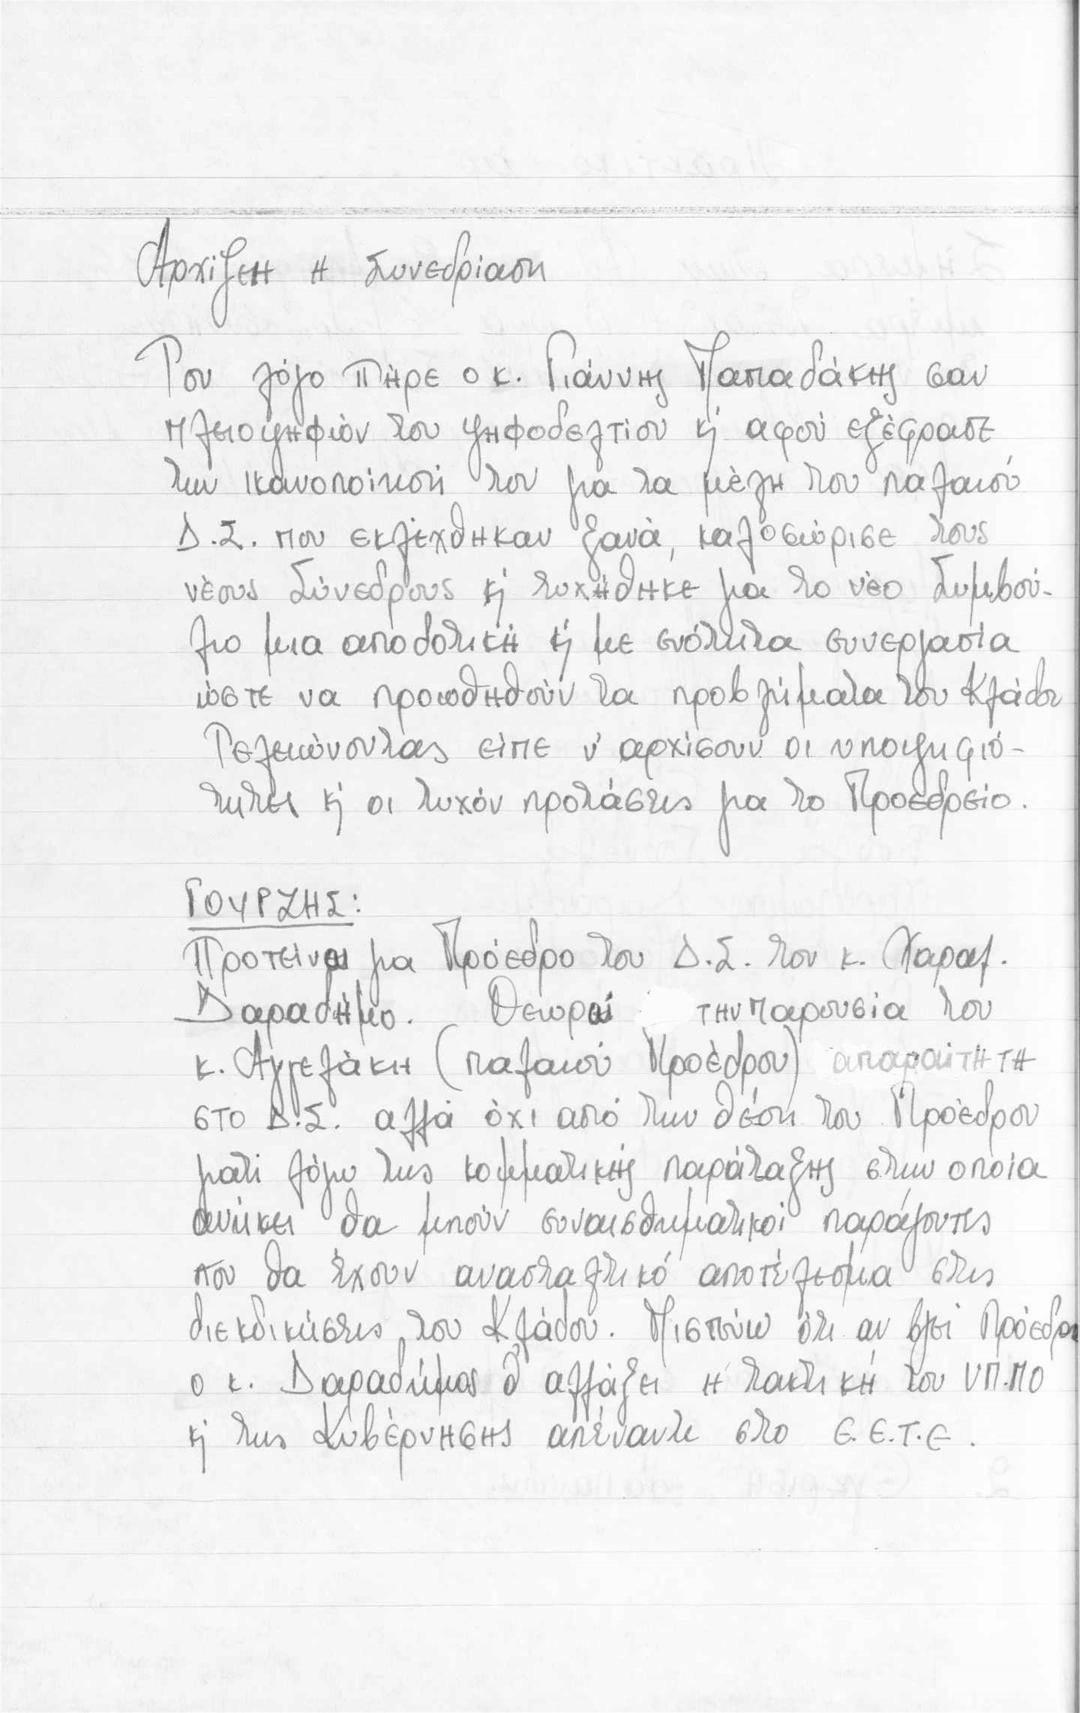 Αρχίζει η Συνεδρίαση
Τον λόγο πήρε ο κ. Γιάννης Παπαδάκης σαν
πλειοψηφιόν του ψηφοδελτίου κ' αφού εξέφρασε
την ικανοποίησή του για τα μέλη του παλαιού
Δ.Σ. που εκλέχθηκαν ξανά, καλοσώρισε τους
νέους Σύνεδρους κ' ευχήθηκε για το νέο Συμβού-
λιο μια αποδοτική κ' με ενότητα συνεργασία
ώστε να προωθηθούν τα προβλήματα του Κλάδου
Τελειώνοντας είπε ν' αρχίσουν οι υποψηφιό-
τητες κ' οι τυχόν προτάσεις για το Προεδρείο.
ΓΟΥΡΖΗΣ:
Προτείνει για Πρόεδρο του Δ.Σ. τον κ. Χαραλ.
Δαραδήμο. Θεωρεί την παρουσία του
κ. Αγγελάκη (παλαιού Προέδρου) απαραίτητη
στο Δ.Σ. αλλά όχι από την θέση του Προέδρου
γιατί λόγω της κομματικής παράταξης στην οποία
ανήκει θα μπούν συναισθηματικοί παράγοντες
που θα έχουν ανασταλτικό αποτέλεσμα στις
διεκδικήσεις του Κλάδου. Πιστεύω ότι αν βγεί Πρόεδρος
ο κ. Δαραδήμος θ' αλλάξει η τακτική του ΥΠ.ΠΟ
κ' της Κυβέρνησης απέναντι στο Ε.Ε.Τ.Ε.